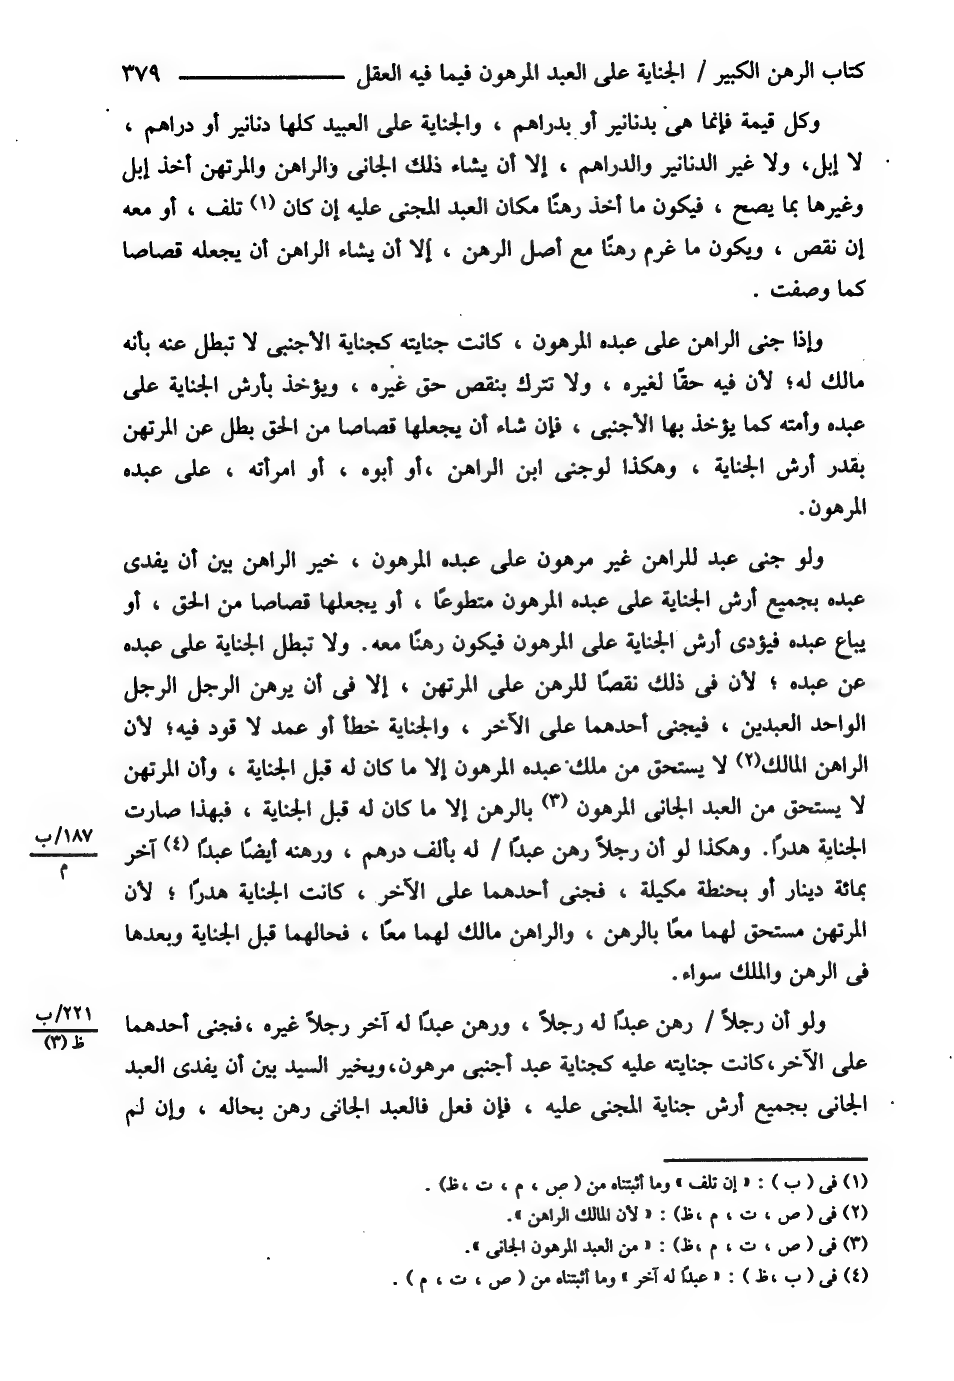 كتاب الرهن الكبير / الجناية على العبد المرهون فيما فيه العقل ــــــــــــــ ٣٧٩
وكل قيمة فإنما هى بدنانير أو بدراهم ، والجناية على العبيد كلها دنانير أو دراهم ،
لا إبل، ولا غير الدنانير والدراهم ، إلا أن يشاء ذلك الجانى والراهن والمرتهن أخذ إبل
وغيرها بما يصح ، فيكون ما أخذ رهنًا مكان العبد المجنى عليه إن كان (١) تلف ، أو معه
إن نقص ، ويكون ما غرم رهنًا مع أصل الرهن ، إلا أن يشاء الراهن أن يجعله قصاصا
كما وصفت .
وإذا جنى الراهن على عبده المرهون ، كانت جنايته كجناية الأجنبى لا تبطل عنه بأنه
مالك له؛ لأن فيه حقًا لغيره ، ولا تترك بنقص حق غيره ، ويؤخذ بأرش الجناية على
عبده وأمته كما يؤخذ بها الأجنبى ، فإن شاء أن يجعلها قصاصا من الحق بطل عن المرتهن
بقدر أرش الجناية ، وهكذا لوجنى ابن الراهن ،أو أبوه ، أو امرأته ، على عبده
المرهون.
ولو جنى عبد للراهن غير مرهون على عبده المرهون ، خير الراهن بين أن يفدى
عبده بجميع أرش الجناية على عبده المرهون متطوعًا ، أو يجعلها قصاصا من الحق ، أو
يباع عبده فيؤدى أرش الجناية على المرهون فيكون رهنًا معه. ولا تبطل الجناية على عبده
عن عبده ؛ لأن فى ذلك نقصًا للرهن على المرتهن ، إلا فى أن يرهن الرجل الرجل
الواحد العبدين ، فيجنى أحدهما على الآخر ، والجناية خطأ أو عمد لا قود فيه؛ لأن
الراهن المالك(٢) لا يستحق من ملك عبده المرهون إلا ما كان له قبل الجناية ، وأن المرتهن
لا يستحق من العبد الجانى المرهون (٣) بالرهن إلا ما كان له قبل الجناية ، فبهذا صارت
الجناية هدرًا. وهكذا لو أن رجلاً رهن عبدًا / له بألف درهم ، ورهنه أيضًا عبدًا (٤) آخر
١٨٧/ب
م
بمائة دينار أو بحنطة مكيلة ، فجنى أحدهما على الآخر ، كانت الجناية هدرًا ؛ لأن
المرتهن مستحق لهما معًا بالرهن ، والراهن مالك لهما معًا ، فحالهما قبل الجناية وبعدها
فى الرهن والملك سواء.
ولو أن رجلاً / رهن عبدًا له رجلاً ، ورهن عبدًا له آخر رجلاً غيره ،فجنى أحدهما
٢٢١/ب
ظ (٣)
على الآخر،كانت جنايته عليه كجناية عبد أجنبى مرهون،ويخير السيد بين أن يفدى العبد
الجانى بجميع أرش جناية المجنى عليه ، فإن فعل فالعبد الجانى رهن بحاله ، وإن لم
(١) فى ( ب ) : « إن تلف » وما أثبتناه من ( ص ، م ، ت ،ظ) .
(٢) فى ( ص ، ت ، م ،ظ) : « لأن المالك الراهن ».
(٣) فى ( ص ، ت ، م ،ظ) : « من العبد المرهون الجانى ».
(٤) فى ( ب ،ظ ) : « عبدًا له آخر » وما أثبتناه من ( ص ، ت ، م ) .